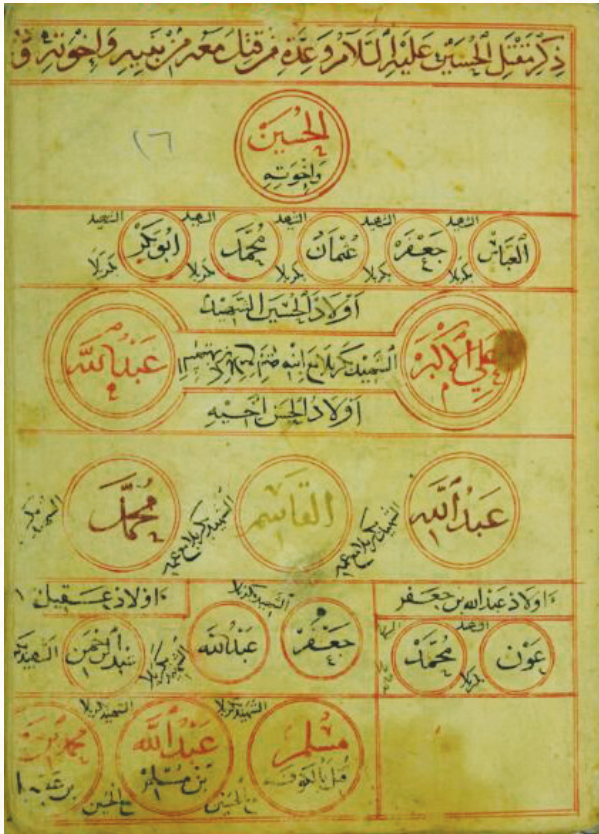 ذكر مقتل الحسين عليه السلام وعدة من قتل معه من بنيه واخوته
١٦
الحسين
واخوته
العباس الشهيد بكربلا جعفر الشهيد بكربلا عثمان الشهيد بكربلا محمد الشهيد بكربلا ابوبكر الشهيد بكربلا
اولاد الحسين الشهيد
علي الاكبر الشهيد بكربلا مع ابيه عبدالله
اولاد الحسن اخيه
عبدالله الشهيد بكربلا مع عمه القاسم الشهيد بكربلا مع عمه محمد
اولاد عبدالله بن جعفر
عون الشهيد بكربلا محمد
اولاد عقيل
جعفر الشهيد بكربلا عبدالله الشهيد بكربلا عبدالرحمن الشهيد
مسلم قتل بالكوفة الشهيد بكربلا مع الحسين عبدالله بن مسلم الشهيد بكربلا مع الحسين محمد بن